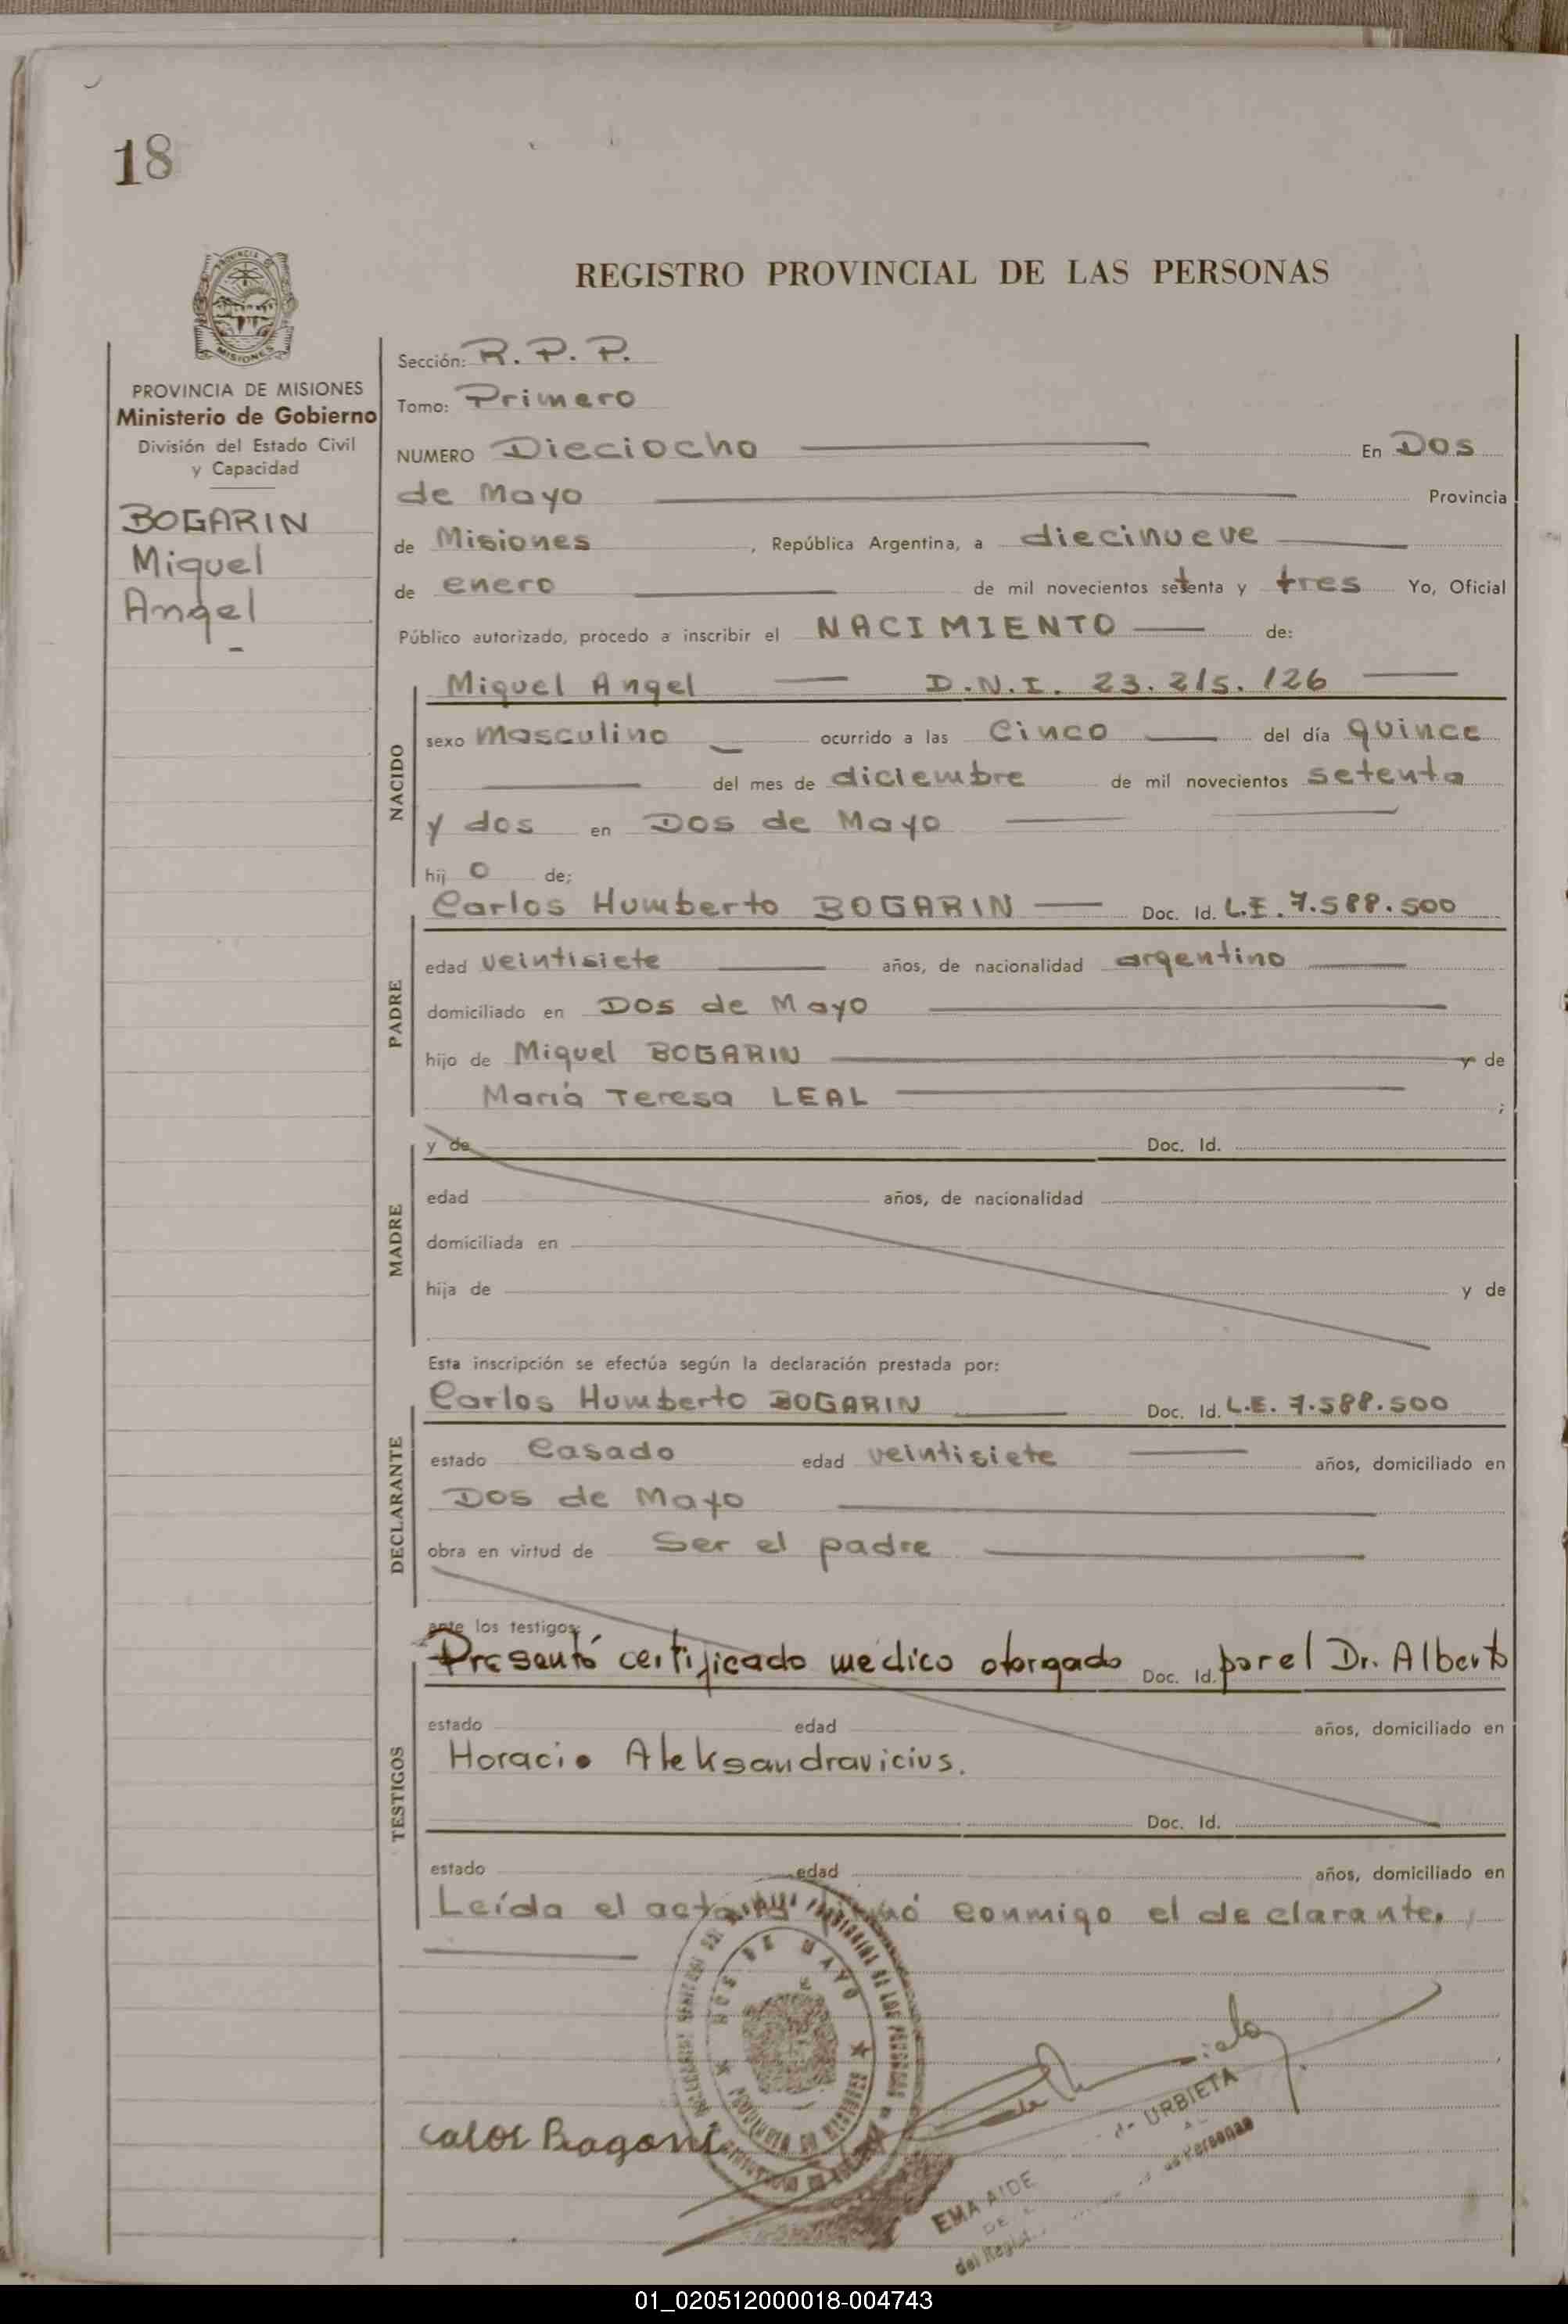 18
PROVINCIA DE
MISIONES
REGISTRO PROVINCIAL DE LAS PERSONAS
PROVINCIA DE MISIONES
Ministerio de Gobierno
División del Estado Civil
y Capacidad
BOGARIN
Miguel
Angel
Sección: R. P. P.
Tomo: Primero
NUMERO Dieciocho En Dos
de Mayo Provincia
de Misiones, República Argentina, a diecinueve
de enero de mil novecientos setenta y tres Yo, Oficial
Público autorizado, procedo a inscribir el NACIMIENTO de:
NACIDO
Miguel Angel D.N.I. 23.215.126
sexo masculino ocurrido a las Cinco del día quince
del mes de diciembre de mil novecientos setenta
y dos en Dos de Mayo
hij o de;
PADRE
Carlos Humberto BOGARIN Doc. Id. L.E. 7.588.500
edad veintisiete años, de nacionalidad argentino
domiciliado en Dos de Mayo
hijo de Miguel BOGARIN y de
María Teresa LEAL ;
MADRE
y de Doc. Id.
edad años, de nacionalidad
domiciliada en
hija de y de
Esta inscripción se efectúa según la declaración prestada por:
DECLARANTE
Carlos Humberto BOGARIN Doc. Id. L.E. 7.588.500
estado Casado edad veintisiete años, domiciliado en
Dos de Mayo
obra en virtud de Ser el padre
ante los testigos:
TESTIGOS
Presentó certificado médico otorgado Doc. Id. por el Dr. Alberto
estado edad años, domiciliado en
Horacio Aleksandravicius.
Doc. Id.
estado edad años, domiciliado en
Leída el acta, firmó conmigo el declarante.
DOS DE MAYO
PROVINCIA DE MISIONES
de URBIETA
EMA AIDE
01_020512000018-004743